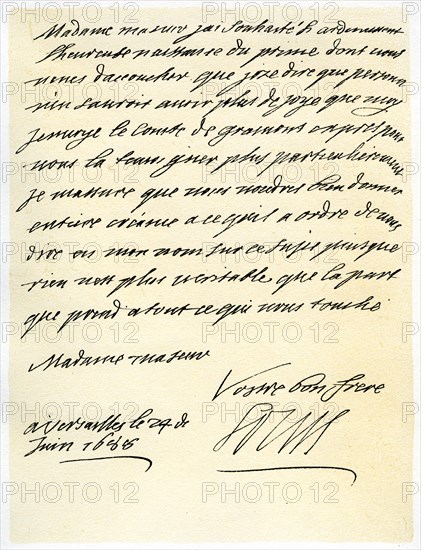 Madame ma seur jai souhaité si ardemment
lheureuse naissance du prince dont vous
venes daccoucher que jose dire que personne
nen sauroit avoir plus de joye que moy
jenvoye le Comte de gramont expres pour
vous la temoigner plus particulierement
je massure que vous voudres bien donner
entiere creance a ce quil a ordre de vous
dire en mon nom sur ce sujet puisque
rien nest plus veritable que la part
que prend a tout ce qui vous touche
Madame ma seur
Vostre bon frere
Louis
a Versailles le 24 de
Juin 1688
PHOTO 12